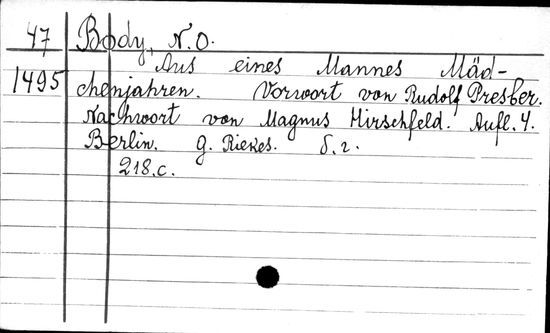 47 Body, N.O.
Aus eines Mannes Mäd-
1495 chenjahren. Vorwort von Rudolf Presber.
Nachwort von Magnus Hirschfeld. Aufl. 4.
Berlin. G. Riekes. S. r.
218.c.